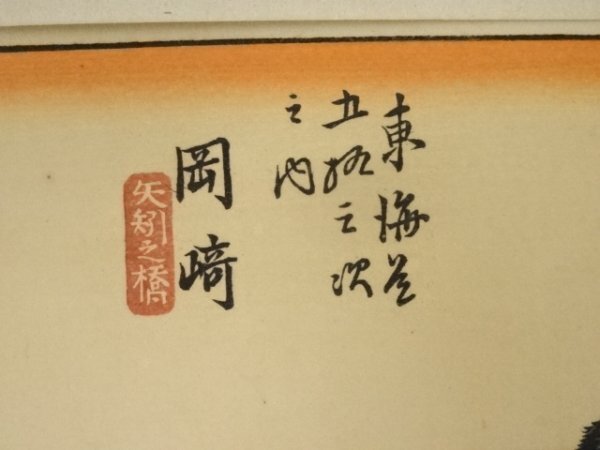 東海道
五拾三次
之内
岡﨑
矢矧之橋